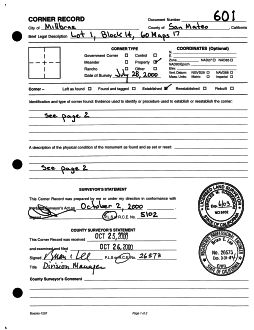 CORNER RECORD
Document Number 601
City of Millbrae County of San Mateo, California
Brief Legal Description Lot 1, Block 14, 60 Maps 17
CORNER TYPE
COORDINATES (Optional)
Government Corner Control
Meander Property
Rancho Other
Date of Survey July 28, 2000
Corner – Left as found Found and tagged Established Reestablished Rebuilt
Identification and type of corner found: Evidence used to identify or procedure used to establish or reestablish the corner:
See page 2
A description of the physical condition of the monument as found and as set or reset:
See page 2
SURVEYOR'S STATEMENT
This Corner Record was prepared by me or under my direction in conformance with
October 2, 2000
Signed P.L.S. or R.C.E. No. 5102
COUNTY SURVEYOR'S STATEMENT
This Corner Record was received OCT 25 2000
and examined and filed OCT 26 2000
Signed Brian C Lee P.L.S. or R.C.E. No. 26573
Title Division Manager
County Surveyor's Comment
Page 1 of 2